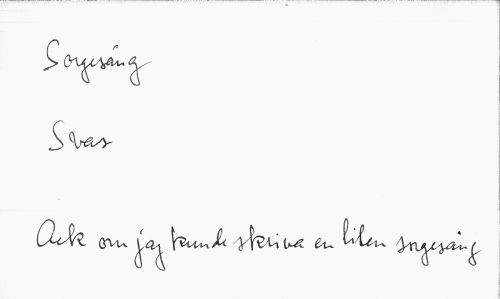 Sorgesång
Svar
Ack om jag kunde skriva en liten sorgesång